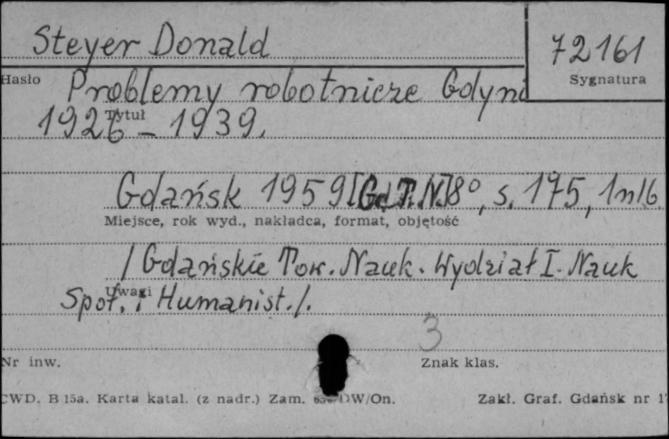 Steyer Donald
72161
Hasło
Sygnatura
Problemy robotnicze Gdyni
Tytuł
1926 – 1939.
Gdańsk 1959 [Gd.T.N.] 8°, s. 175, 1nlb.
Miejsce, rok wyd., nakładca, format, objętość
/Gdańskie Tow. Nauk. Wydział I. Nauk
Uwagi
Społ. i Humanist./.
3
Nr inw.
Znak klas.
CWD. B 15a. Karta katal. (z nadr.) Zam. DW/On.
Zakł. Graf. Gdańsk nr